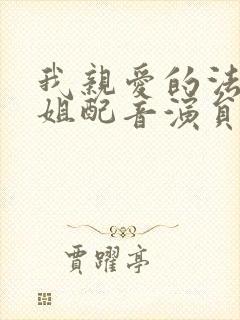 我親愛的法
姐配音演員
賈躍亭